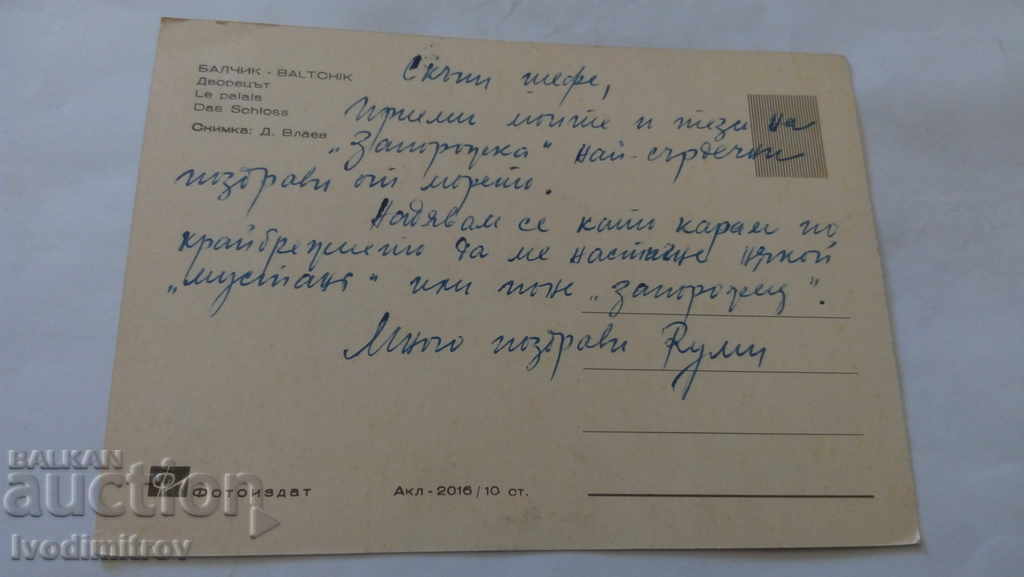 БАЛЧИК - BALTCHIK
Дворецът
Le palais
Das Schloss
Снимка: Д. Влаев
Скъпи шефе,
Приеми моите и тези на
„Запорожка" най-сърдечни
поздрави от морето.
Надявам се като карам по
крайбрежието да ме настигне някой
„мустанг" или поне „запорожец".
Много поздрави Руми
Фотоиздат
Акл-2016/10 ст.
BALKAN
auction
Ivodimitrov